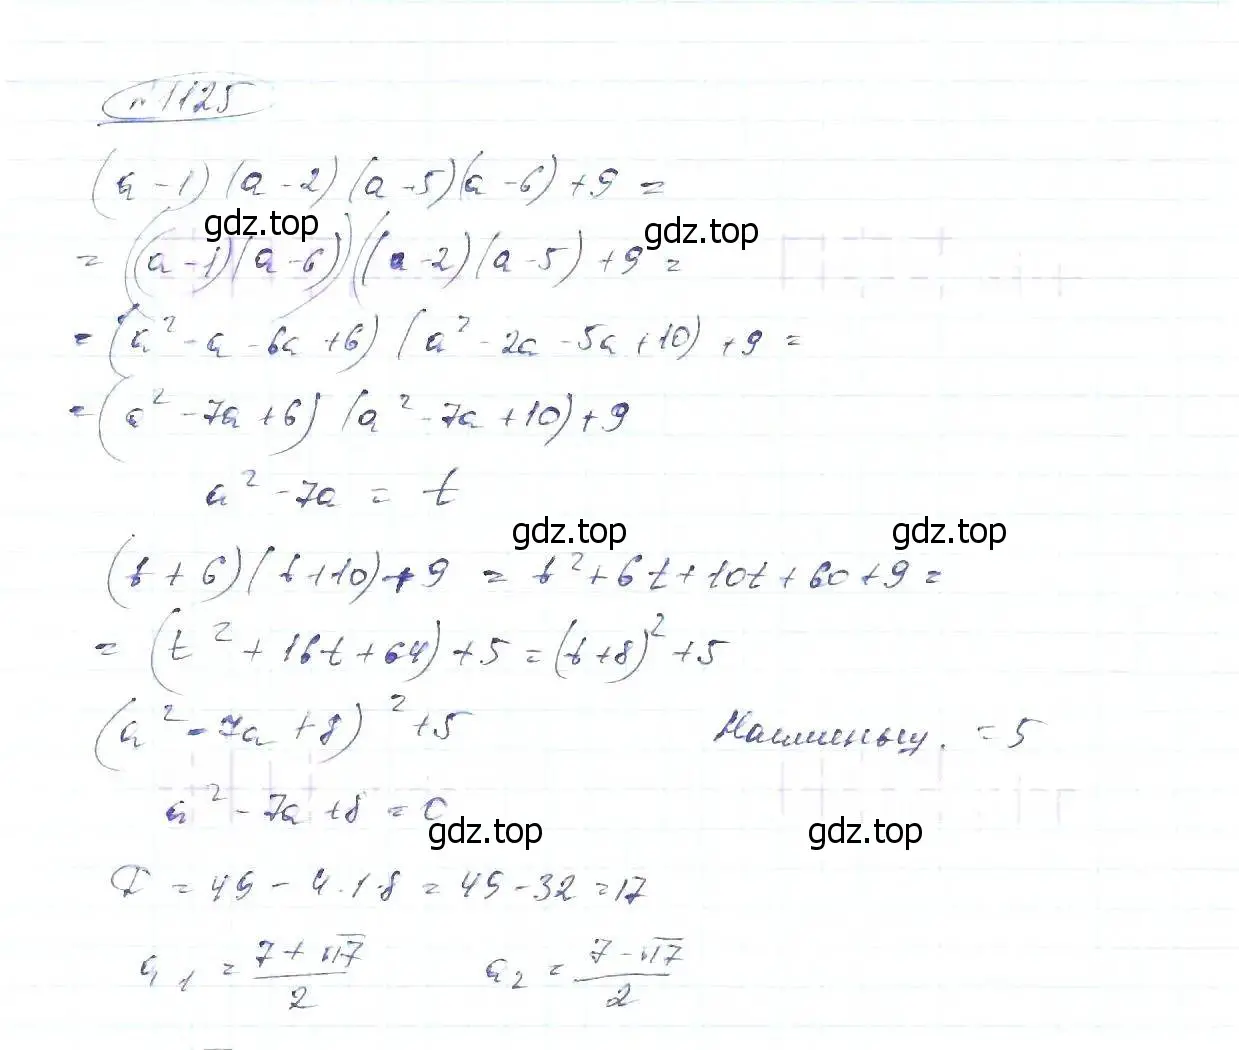 № 1125
(a - 1) (a - 2) (a - 5)(a - 6) + 9 =
gdz.top
gdz.top
= ((a - 1)(a - 6)) ((a - 2)(a - 5) + 9 =
= (a² - a - 6a + 6) (a² - 2a - 5a + 10) + 9 =
= (a² - 7a + 6) (a² - 7a + 10) + 9
a² - 7a = t
gdz.top
gdz.top
(t + 6)(t + 10) + 9 = t² + 6t + 10t + 60 + 9 =
= (t² + 16t + 64) + 5 = (t + 8)² + 5
(a² - 7a + 8)² + 5 Наименьш. = 5
a² - 7a + 8 = 0
gdz.top
gdz.top
D = 49 - 4 · 1 · 8 = 49 - 32 = 17
a₁ = (7 + √17)/2 a₂ = (7 - √17)/2